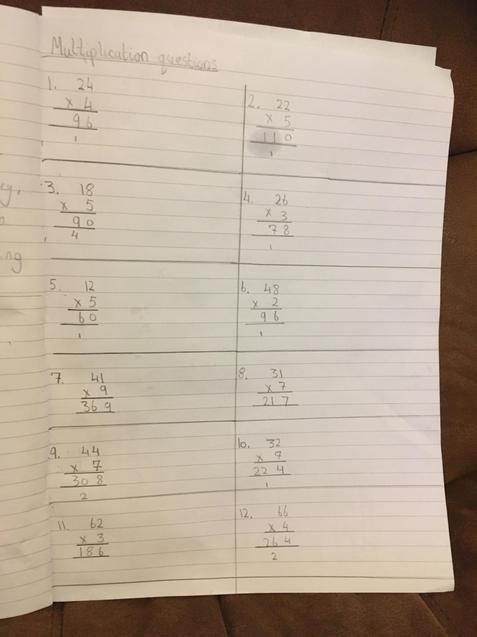 Multiplication questions
1. 24
x 4
96
1
2. 22
x 5
110
1
3. 18
x 5
90
4
4. 26
x 3
78
1
5. 12
x 5
60
1
6. 48
x 2
96
1
7. 41
x 9
369
8. 31
x 7
217
9. 44
x 7
308
2
10. 32
x 7
224
1
11. 62
x 3
186
12. 66
x 4
264
2